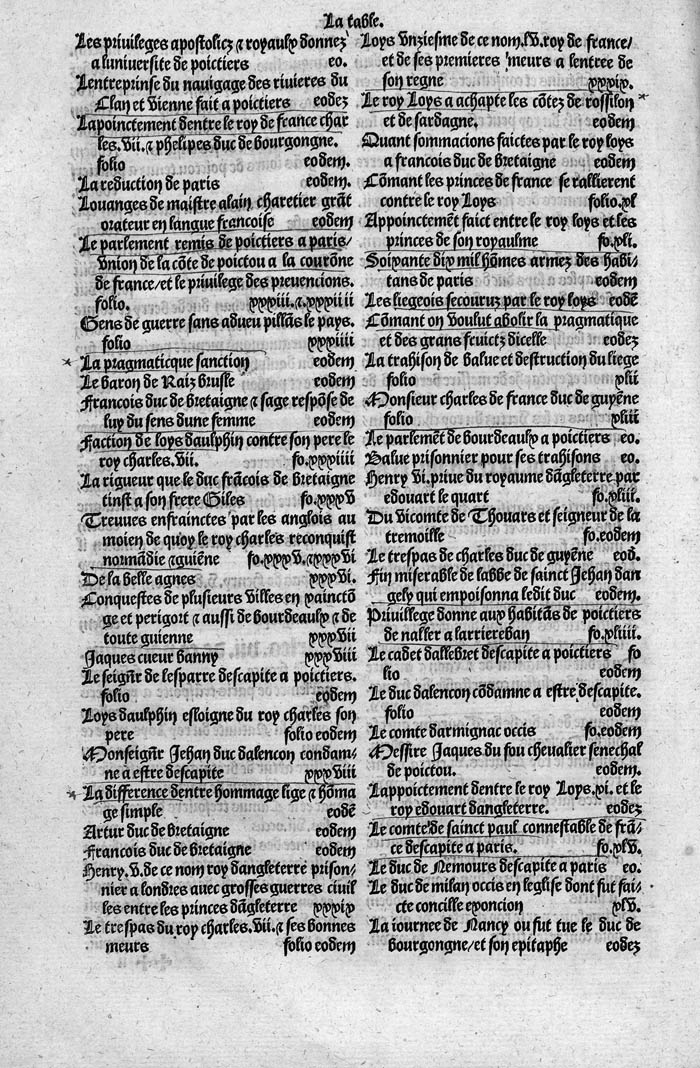 La table.
Les priuileges apostolicz ⁊ royaulx donnez
a luniuersite de poictiers eo.
Lentreprinse du nauigage des riuieres du
Clan et Vienne fait a poictiers eodez
Lapoinctement dentre le roy de france char
les.vii.⁊ phelipes duc de bourgongne.
folio eodem.
La reduction de paris eodem.
Louanges de maistre alain charetier grāt
orateur en langue francoise eodem
Le parlement remis de poictiers a paris/
vnion de la cōte de poictou a la courōne
de france/et le priuilege des preuencions.
folio. xxxiii.⁊.xxxiiii
Gens de guerre sans adueu pillās le pays.
folio xxxiiii
La pragmaticque sanction eodem
Le baron de Raiz brusle eodem
Francois duc de bretaigne ⁊ sage respōse de
luy du sens dune femme eodem
Faction de loys daulphin contre son pere le
roy charles.vii. fo.xxxiiii
La rigueur que le duc frācois de bretaigne
tinst a son frere Giles fo.xxxv
Treuues enfrainctes par les anglois au
moien de quoy le roy charles reconquist
normādie ⁊ guiēne fo.xxxv.⁊.xxxvi
De la belle agnes xxxvi.
Conquestes de plusieurs villes en xainctō
ge et perigort ⁊ aussi de bourdeaulx ⁊ de
toute guienne xxxvii
Jaques cueur banny xxxviii
Le seignr̄ de lesparre descapite a poictiers.
folio eodem
Loys daulphin esloigne du roy charles son
pere folio eodem
Monseignr̄ Jehan duc dalencon condam/
ne a estre descapite xxxviii
La difference dentre hommage lige ⁊ hōma
ge simple eodē
Artur duc de bretaigne eodem
Francois duc de bretaigne eodem
Henry.v.de ce nom roy dangleterre prison/
nier a londres auec grosses guerres ciuil
les entre les princes dāgleterre xxxix
Le trespas du roy charles.vii.⁊ ses bonnes
meurs folio eodem
Loys vnziesme de ce nom.lv.roy de france/
et de ses premieres meurs a lentree de
son regne xxxix.
Le roy Loys a achapte les cōtez de rossilon
et de sardagne. eodem
Quant sommacions faictes par le roy loys
a francois duc de bretaigne eodem
Cōmant les princes de france se rallierent
contre le roy Loys folio.xl
Appoinctemēt faict entre le roy loys et les
princes de son royaulme fo.xli.
Soixante dix mil hōmes armez des habi/
tans de paris eodem
Les liegeois secouruz par le roy loys eodē
Cōmant on voulut abolir la pragmatique
et des grans fruictz dicelle eodez
La trahison de balue et destruction du liege
folio xlii
Monsieur charles de france duc de guyēne
folio xliii
Le parlemēt de bourdeaulx a poictiers eo.
Balue prisonnier pour ses trahisons eo.
Henry vi.priue du royaume dāgleterre par
edouart le quart fo.xliii.
Du vicomte de Thouars et seigneur de la
tremoille fo.eodem
Le trespas de charles duc de guyēne eod.
Fin miserable de labbe de sainct Jehan dan
gely qui empoisonna ledit duc eodem.
Priuillege donne aux habitās de poictiers
de naller a larriereban fo.xliiii.
Le cadet dallebret descapite a poictiers fo
lio eodem
Le duc dalencon cōdamne a estre descapite.
folio eodem
Le comte darmignac occis fo.eodem
Messire Jaques du fou cheualier senechal
de poictou. eodem.
Lappoictement dentre le roy Loys.xi. et le
roy edouart dangleterre. eodez
Le comte de sainct paul connestable de frā/
ce descapite a paris. fo.xlv.
Le duc de Nemours descapite a paris eo.
Le duc de milan occis en leglise dont fut fai/
cte concille exoncion xlv.
La iournee de Nancy ou fut tue le duc de
bourgongne/et son epitaphe eodez